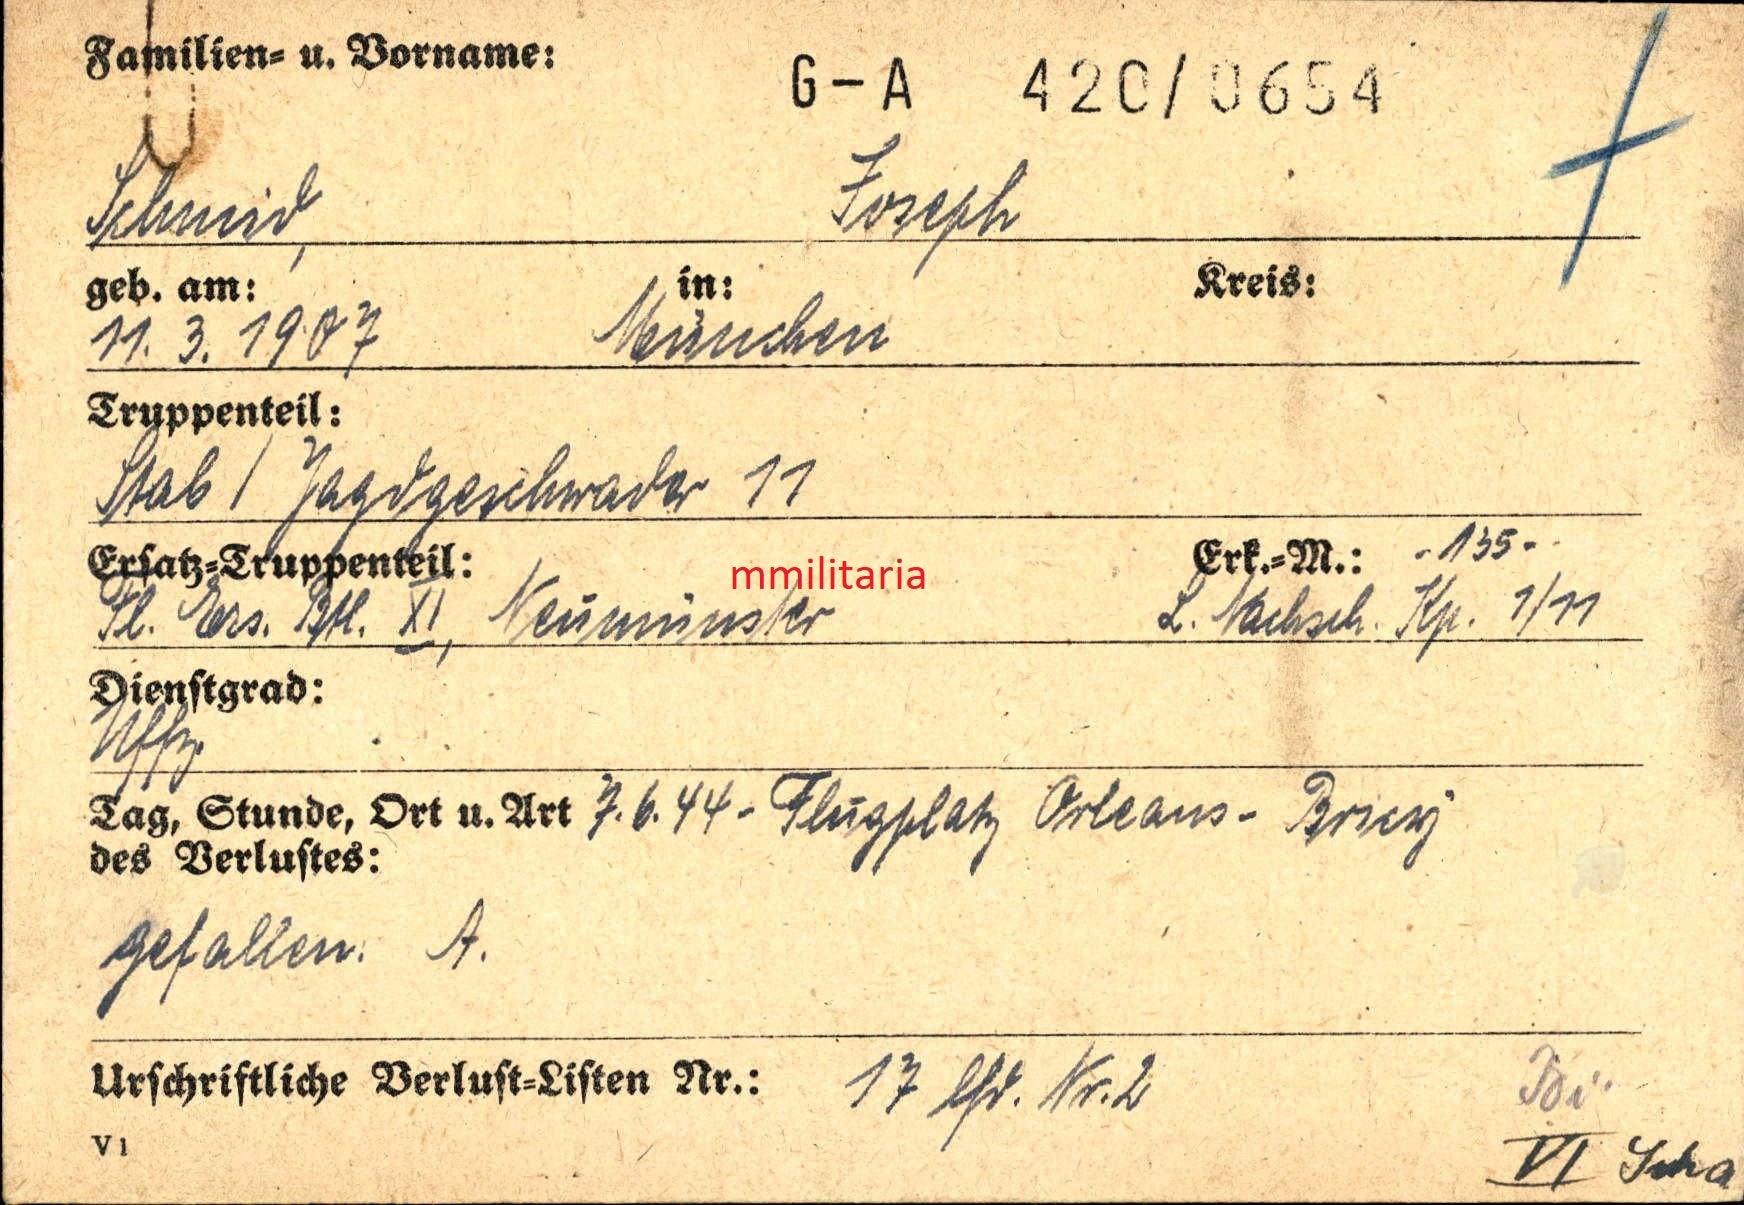 Familien- u. Vorname:
G-A 420/0654
Schmid, Joseph
geb. am: in: Kreis:
11. 3. 1907 München
Truppenteil:
Stab / Jagdgeschwader 11
Ersatz-Truppenteil: Erk.-M.: -135-
mmilitaria
Fl. Ers. Btl. XI, Neumünster L. Nachsch. Kp. 1/11
Dienstgrad:
Uffz.
Tag, Stunde, Ort u. Art 7.6.44 - Flugplatz Orleans - Bricy
des Verlustes:
gefallen. A.
Urschriftliche Verlust-Listen Nr.: 17 lfd. Nr. 2
V 1
VI